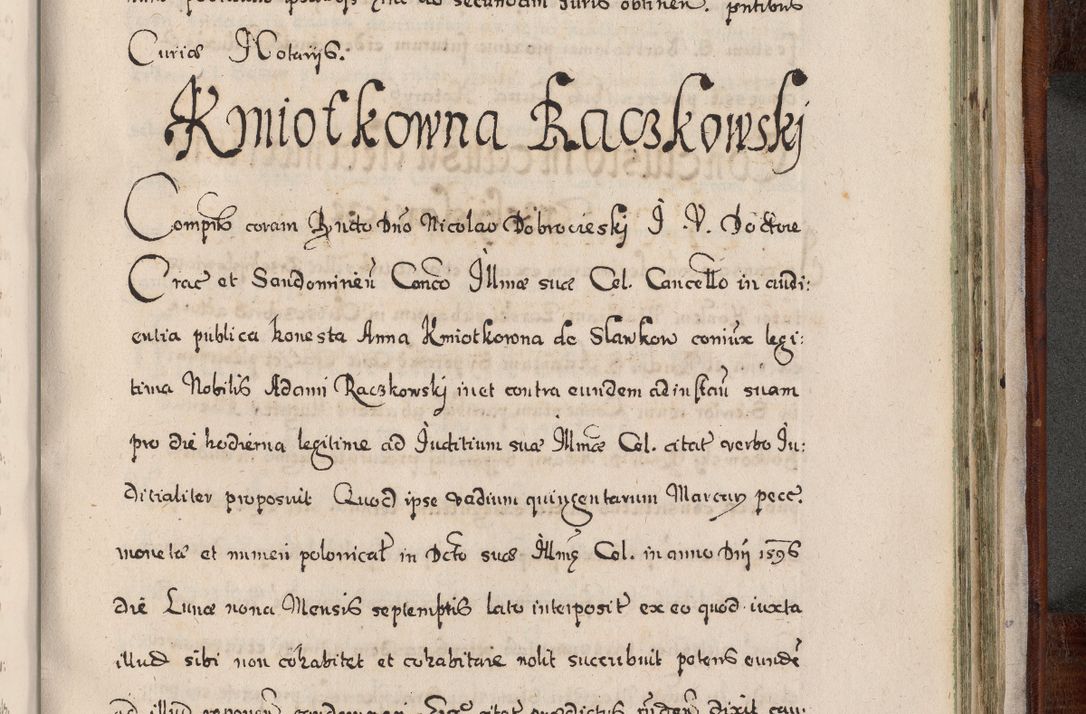 Curiæ Notarijs.
Kmiotkowna Raczkowski
Comprñs coram Rñdo Dño Nicolao Dobrocieski J. V. Doctore
Crac et Sandomireñ Canco Illmæ suæ Cel. Cancello in audi:
entia publica honesta Anna Kmiotkowna de Slawkow coniux legi:
tima Nobilis Adami Raczkowskj inet contra eundem ad instañ suam
pro die hodierna legitime ad Juditium suæ Illmæ Cel. citat verbo Ju:
ditialiter proposuit Quod ipse vadium quingentarum Marcarum pecc.
monetæ et numeri polonicat in Dcto suæ Illmæ Cel. in anno Dni 1596
die Lunæ nona Mensis septembris lato interposit ex eo quod iuxta
illud sibi non cohabitet et cohabitare nolit succubuit petens eunde